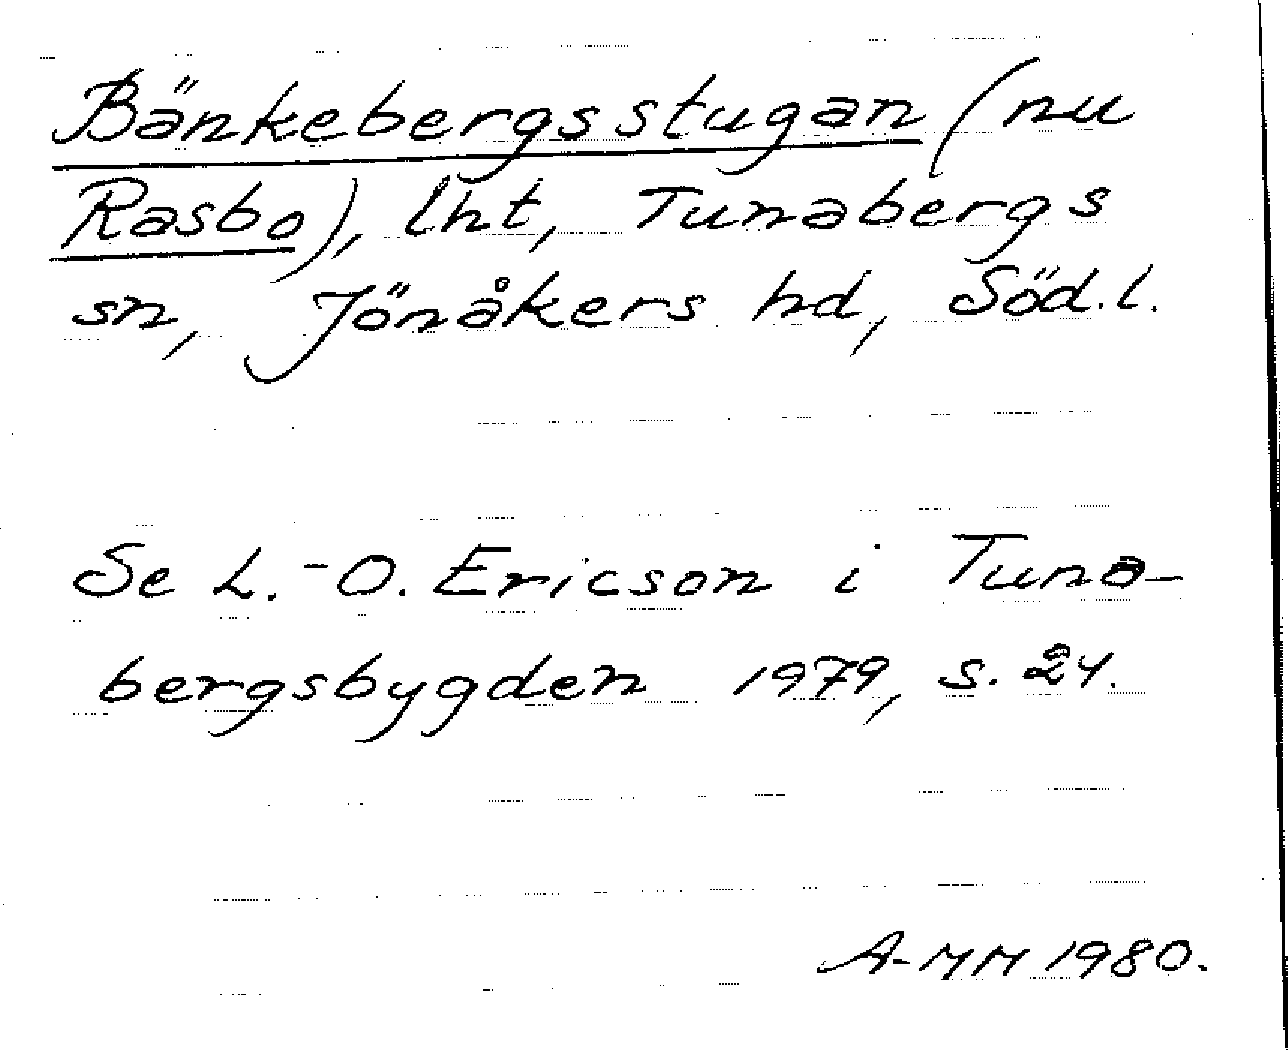 Bänkebergsstugan (nu
Rasbo), lht, Tunabergs
sn, Jönåkers hd, Söd.l.
Se L.-O. Ericson i Tuna-
bergsbygden 1979, s. 24.
A-MM 1980.